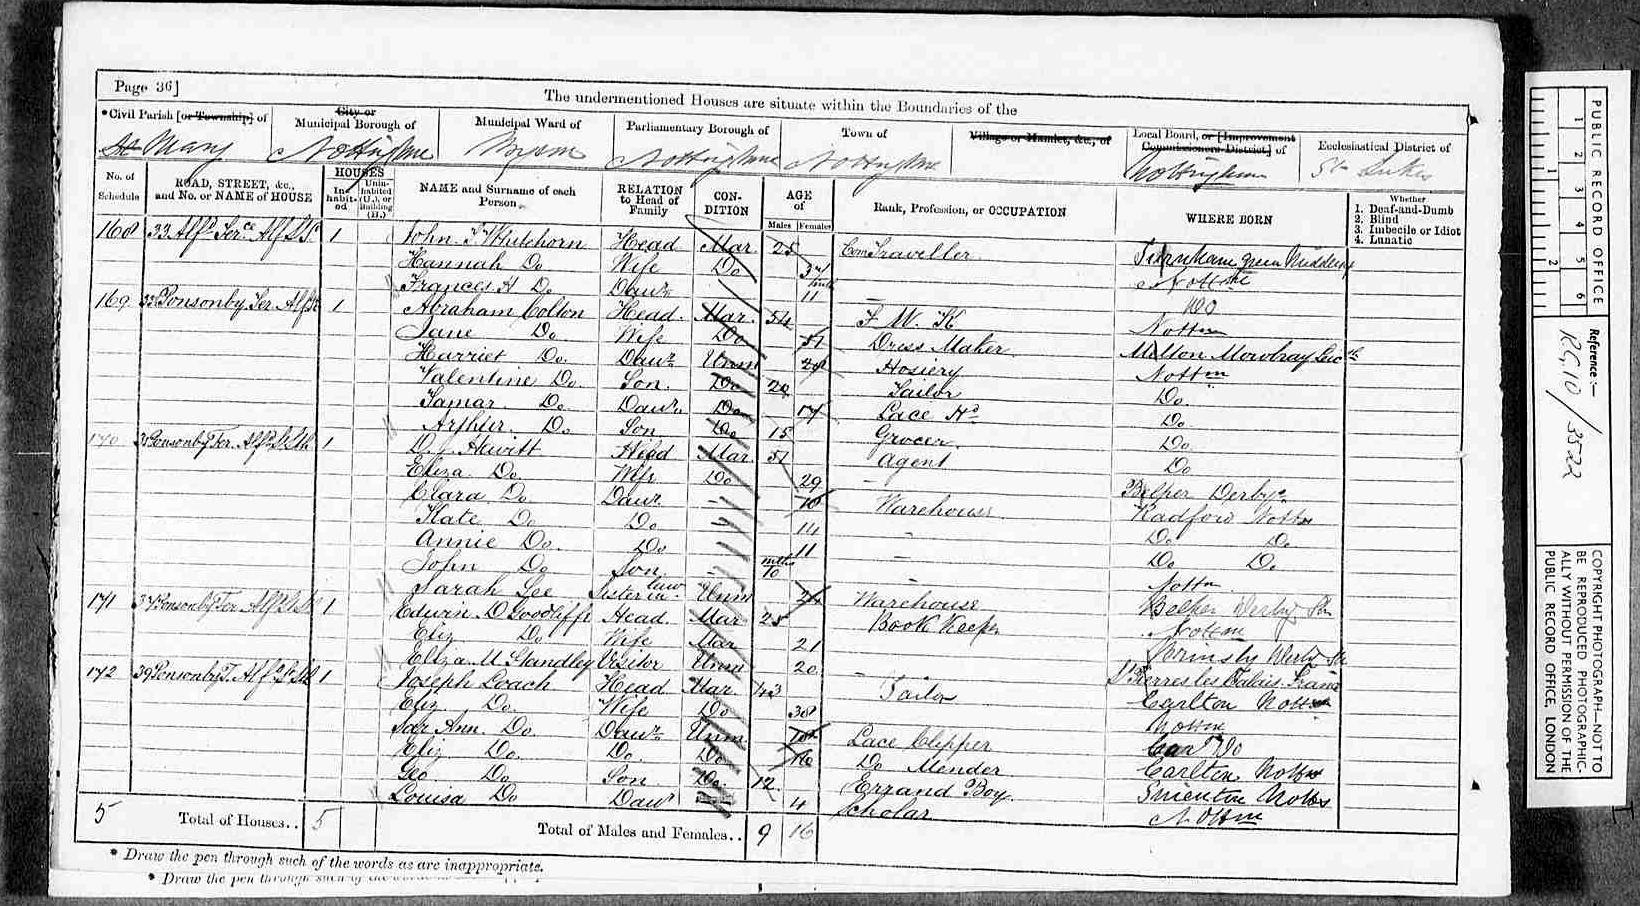 Page 36]
The undermentioned Houses are situate within the Boundaries of the
*Civil Parish [or Township] of
City or
Municipal Borough of
Municipal Ward of
Parliamentary Borough of
Town of
Village or Hamlet, &c., of
Local Board, or [Improvement
Commissioners District] of
Ecclesiastical District of
St Mary Nottingham Nottingham Nottingham Nottingham St Lukes
No. of
Schedule
ROAD, STREET, &c.,
and No. or NAME of HOUSE
HOUSES
In-
habit-
ed
Unin-
habited
(U.), or
Building
(B.)
NAME and Surname of each
Person
RELATION
to Head of
Family
CON-
DITION
AGE
of
Males Females
Rank, Profession, or OCCUPATION
WHERE BORN
Whether
1. Deaf-and-Dumb
2. Blind
3. Imbecile or Idiot
4. Lunatic
168 33 1 John Head Mar 25 Com Traveller Turnham Green
Hannah Do Wife Do
Frances H Do Daur 11 Do
169 Ponsonby Ter 1 Abraham Colton Head Mar 54 F W K Nottm
Jane Do Wife Do 51 Dress Maker Melton Mowbray
Harriet Do Daur Unm Hosiery Nottm
Valentine Do Son Do Tailor Do
Tamar Do Daur Do 17 Lace Do
Arthur Do Son Do 15 Grocer Do
170 Ponsonby Ter 1 Hewitt Head Mar 51 Agent Do
Eliza Do Wife Do 29 — Belper Derby
Clara Do Daur — Warehouse Radford Notts
Kate Do Do — 14 Do Do
Annie Do Do 11 Do Do
John Do Son mths 10 Nottm
Sarah Lee Sister in law Unm Warehouse Belper
171 37 Ponsonby Ter 1 Edwin D Goodliffe Head Mar 25 Book Keeper Nottm
Eliz Do Wife Mar 21
Eliza M Standley Visitor Unm 20 St Pierre les Calais France
172 39 Ponsonby T. 1 Joseph Loach Head Mar 43 Tailor Carlton Notts
Eliz Do Wife Do 38 Nottm
Sar Ann Do Daur Unm Lace Clipper Do
Eliz Do Do Do 16 Do Mender Carlton Notts
Geo Do Son Do 12 Errand Boy Sneinton Notts
Louisa Do Daur 4 Scholar Nottm
5 Total of Houses.. 5 Total of Males and Females.. 9 16
* Draw the pen through such of the words as are inappropriate.
* Draw the pen through such of the words
PUBLIC RECORD OFFICE
1 2 3 4 5 6
1 2
Reference:—
RG10/3522
COPYRIGHT PHOTOGRAPH—NOT TO
BE REPRODUCED PHOTOGRAPHIC-
ALLY WITHOUT PERMISSION OF THE
PUBLIC RECORD OFFICE, LONDON